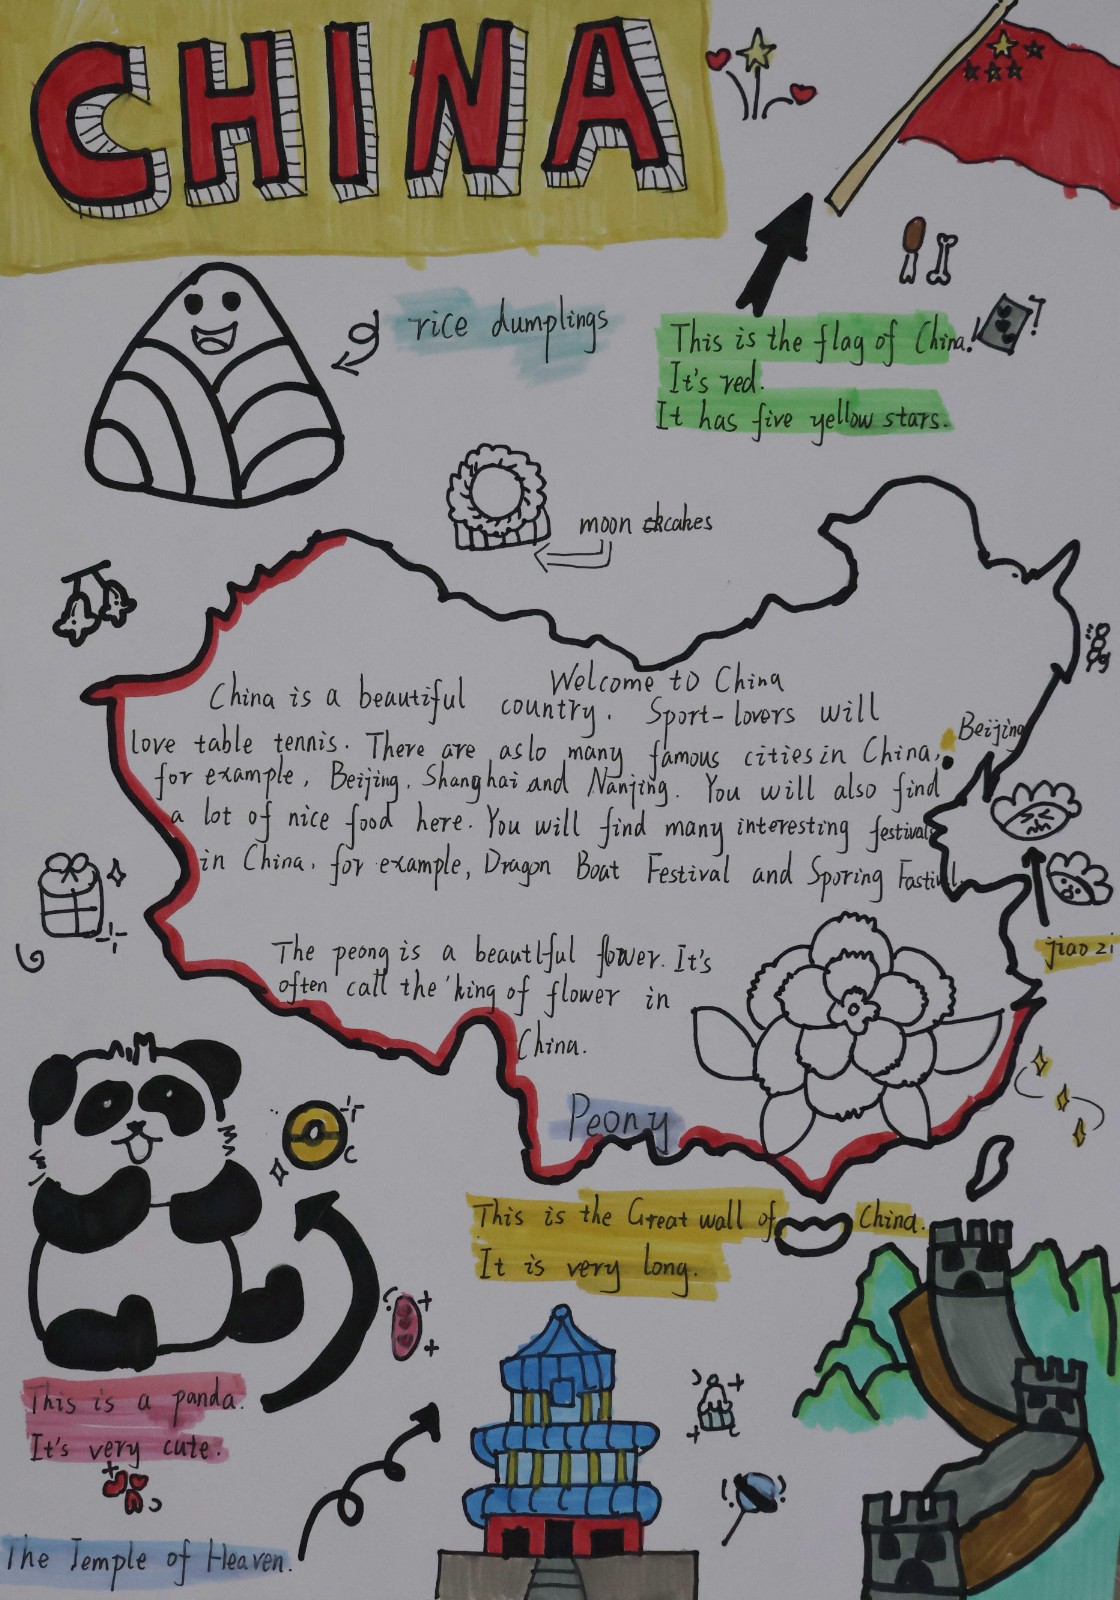 CHINA
rice dumplings
This is the flag of China!
It's red.
It has five yellow stars.
moon cakes
Welcome to China
China is a beautiful country. Sport-lovers will
love table tennis. There are aslo many famous cities in China,
for example, Beijing, Shanghai and Nanjing. You will also find
a lot of nice food here. You will find many interesting festivals
in China, for example, Dragon Boat Festival and Sporing Fastival.
Beijing
jiao zi
The peong is a beautlful flower. It's
often call the 'king of flower in
China.
Peony
This is the Great wall of China.
It is very long.
This is a panda.
It's very cute.
The Temple of Heaven.